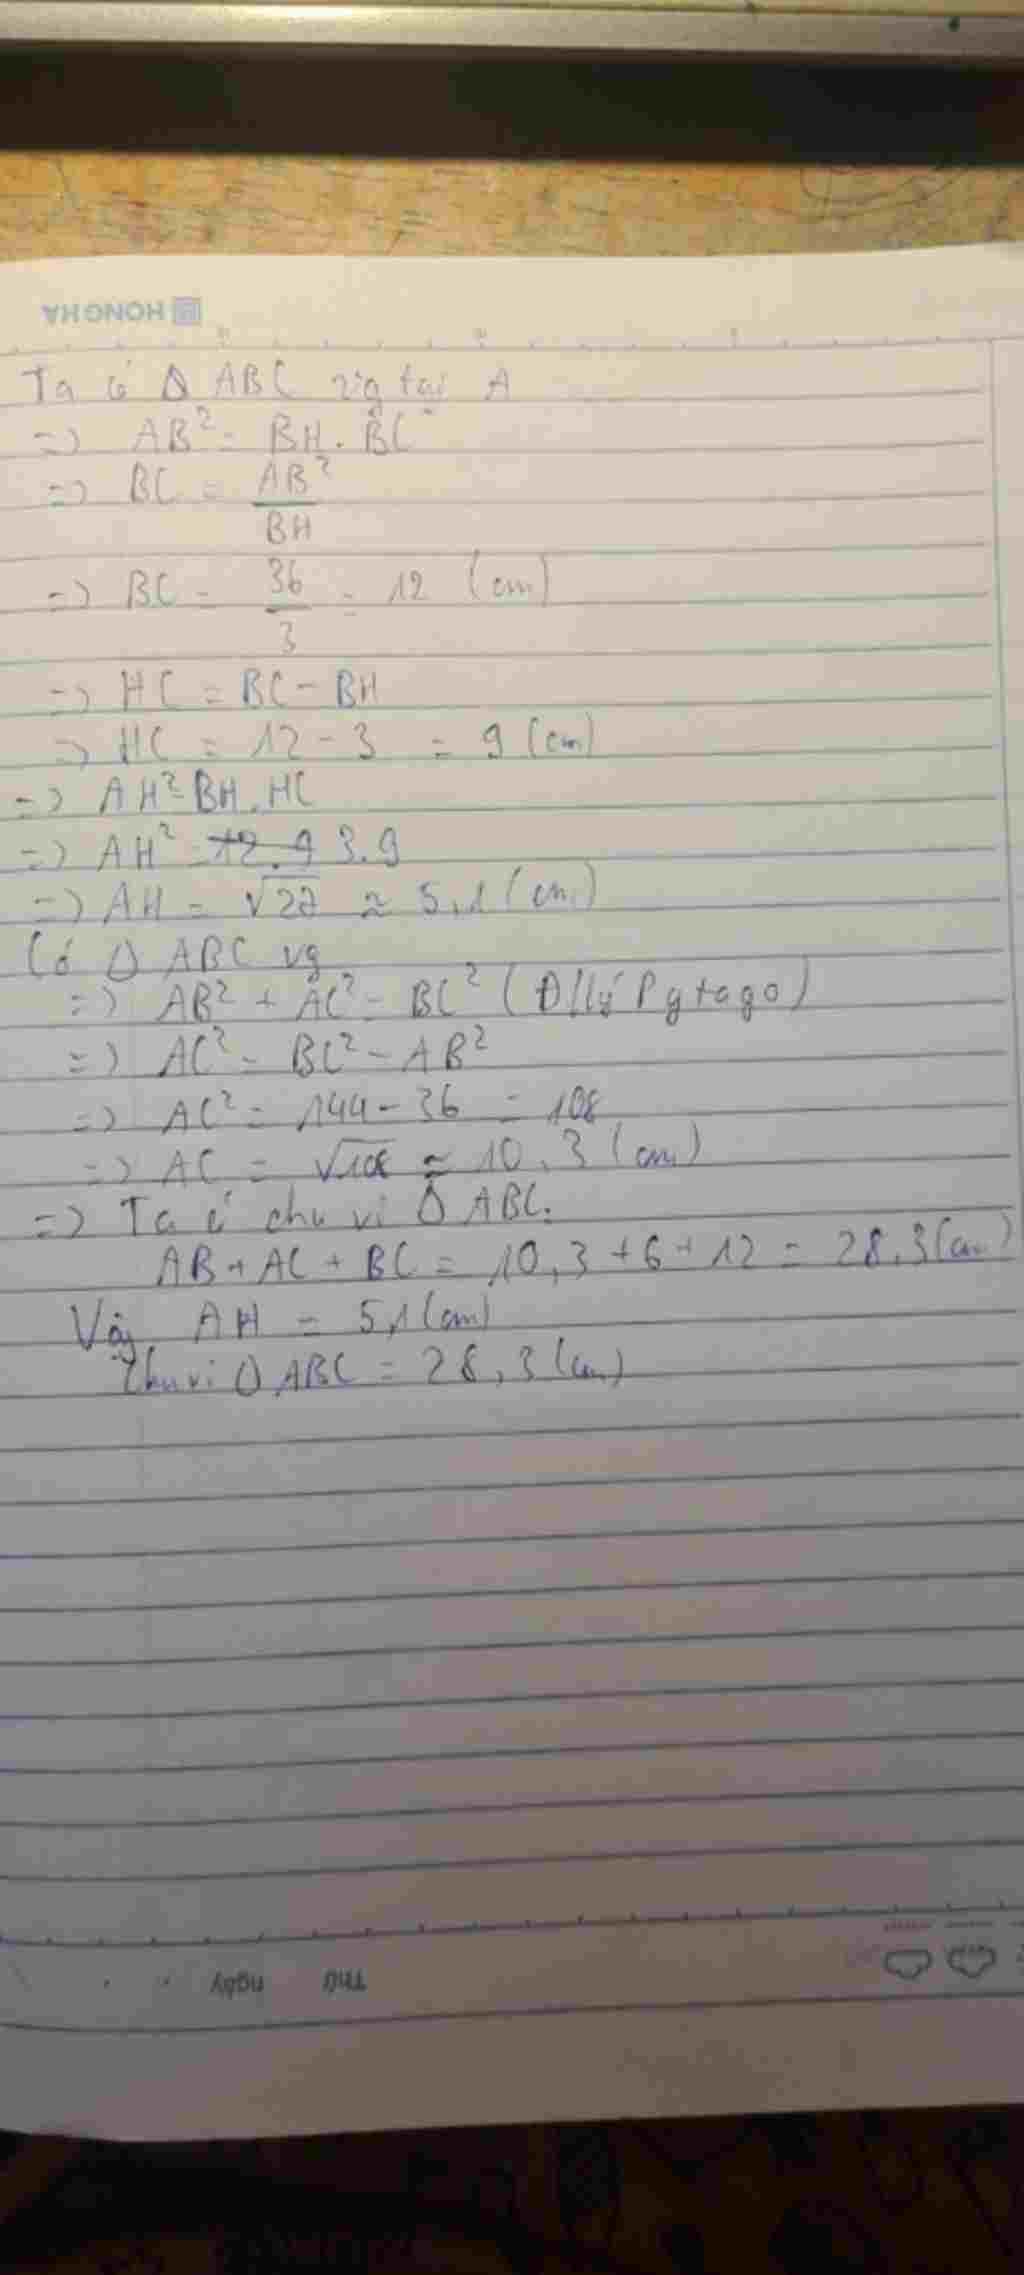 HONG HA
Ta có Δ ABC vg tại A
=> AB² = BH . BC
=> BC = AB² / BH
=> BC = 36 / 3 = 12 (cm)
=> HC = BC - BH
=> HC = 12 - 3 = 9 (cm)
=> AH² = BH . HC
=> AH² = 12.9 3.9
=> AH = √27 ≈ 5,1 (cm)
Có Δ ABC vg
=> AB² + AC² = BC² (Đlý Pytago)
=> AC² = BC² - AB²
=> AC² = 144 - 36 = 108
=> AC = √108 ≈ 10,3 (cm)
=> Ta có chu vi Δ ABC:
AB + AC + BC = 10,3 + 6 + 12 = 28,3 (cm)
Vậy AH = 5,1 (cm)
Chu vi Δ ABC = 28,3 (cm)
Thứ ngày